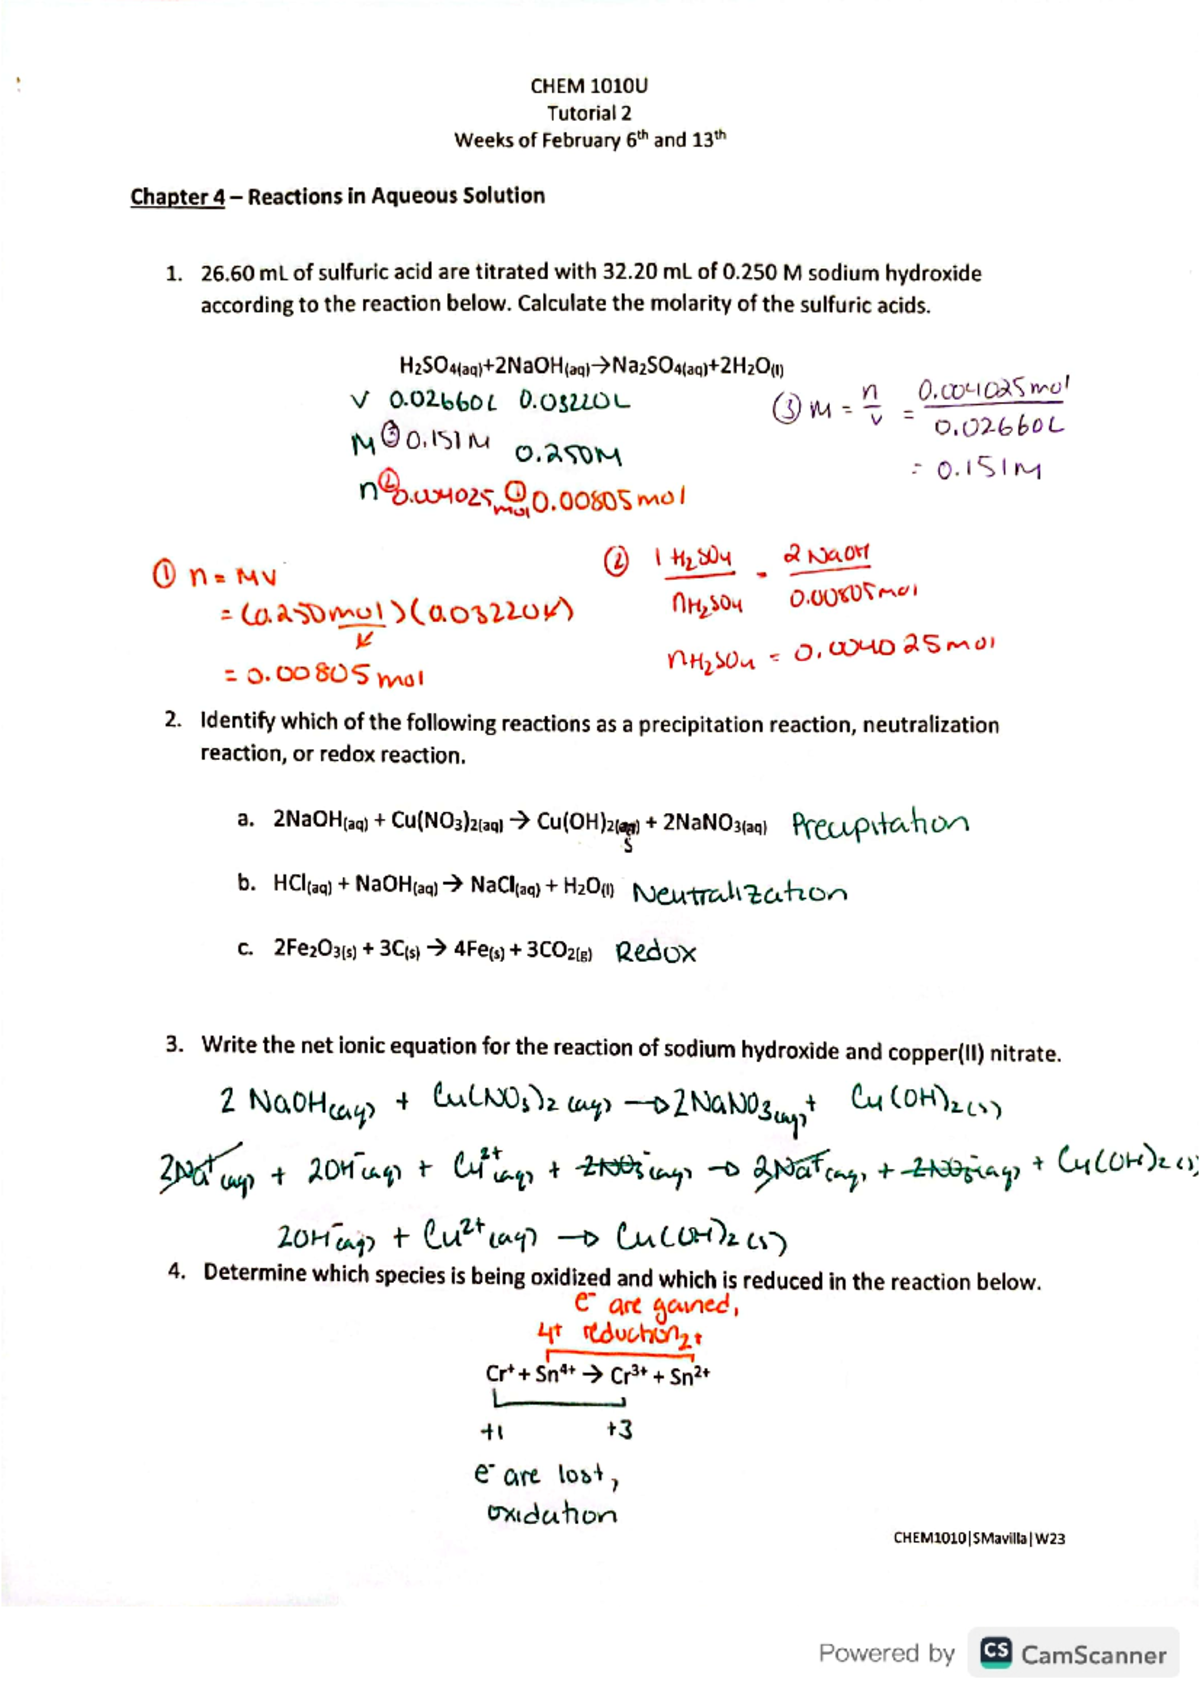 CHEM 1010U
Tutorial 2
Weeks of February 6th and 13th
Chapter 4 – Reactions in Aqueous Solution
1. 26.60 mL of sulfuric acid are titrated with 32.20 mL of 0.250 M sodium hydroxide
according to the reaction below. Calculate the molarity of the sulfuric acids.
H2SO4(aq)+2NaOH(aq)→Na2SO4(aq)+2H2O(l)
V 0.02660L 0.03220L
M ③ 0.151M 0.250M
n ② 0.004025 mol ① 0.00805 mol
③ M = n/v = 0.004025 mol / 0.02660L
= 0.151M
① n = MV
= (0.250 mol/L)(0.03220L)
= 0.00805 mol
② 1 H2SO4 / nH2SO4 = 2 NaOH / 0.00805 mol
nH2SO4 = 0.004025 mol
2. Identify which of the following reactions as a precipitation reaction, neutralization
reaction, or redox reaction.
a. 2NaOH(aq) + Cu(NO3)2(aq) → Cu(OH)2(aq) + 2NaNO3(aq) Precipitation
s
b. HCl(aq) + NaOH(aq) → NaCl(aq) + H2O(l) Neutralization
c. 2Fe2O3(s) + 3C(s) → 4Fe(s) + 3CO2(g) Redox
3. Write the net ionic equation for the reaction of sodium hydroxide and copper(II) nitrate.
2 NaOH(aq) + Cu(NO3)2 (aq) → 2NaNO3(aq) + Cu(OH)2(s)
2Na+(aq) + 2OH-(aq) + Cu2+(aq) + 2NO3-(aq) → 2Na+(aq) + 2NO3-(aq) + Cu(OH)2(s)
2OH-(aq) + Cu2+(aq) → Cu(OH)2(s)
4. Determine which species is being oxidized and which is reduced in the reaction below.
e- are gained,
4+ reduction 2+
Cr+ + Sn4+ → Cr3+ + Sn2+
+1 +3
e- are lost,
oxidation
CHEM1010|SMavilla|W23
Powered by CS CamScanner